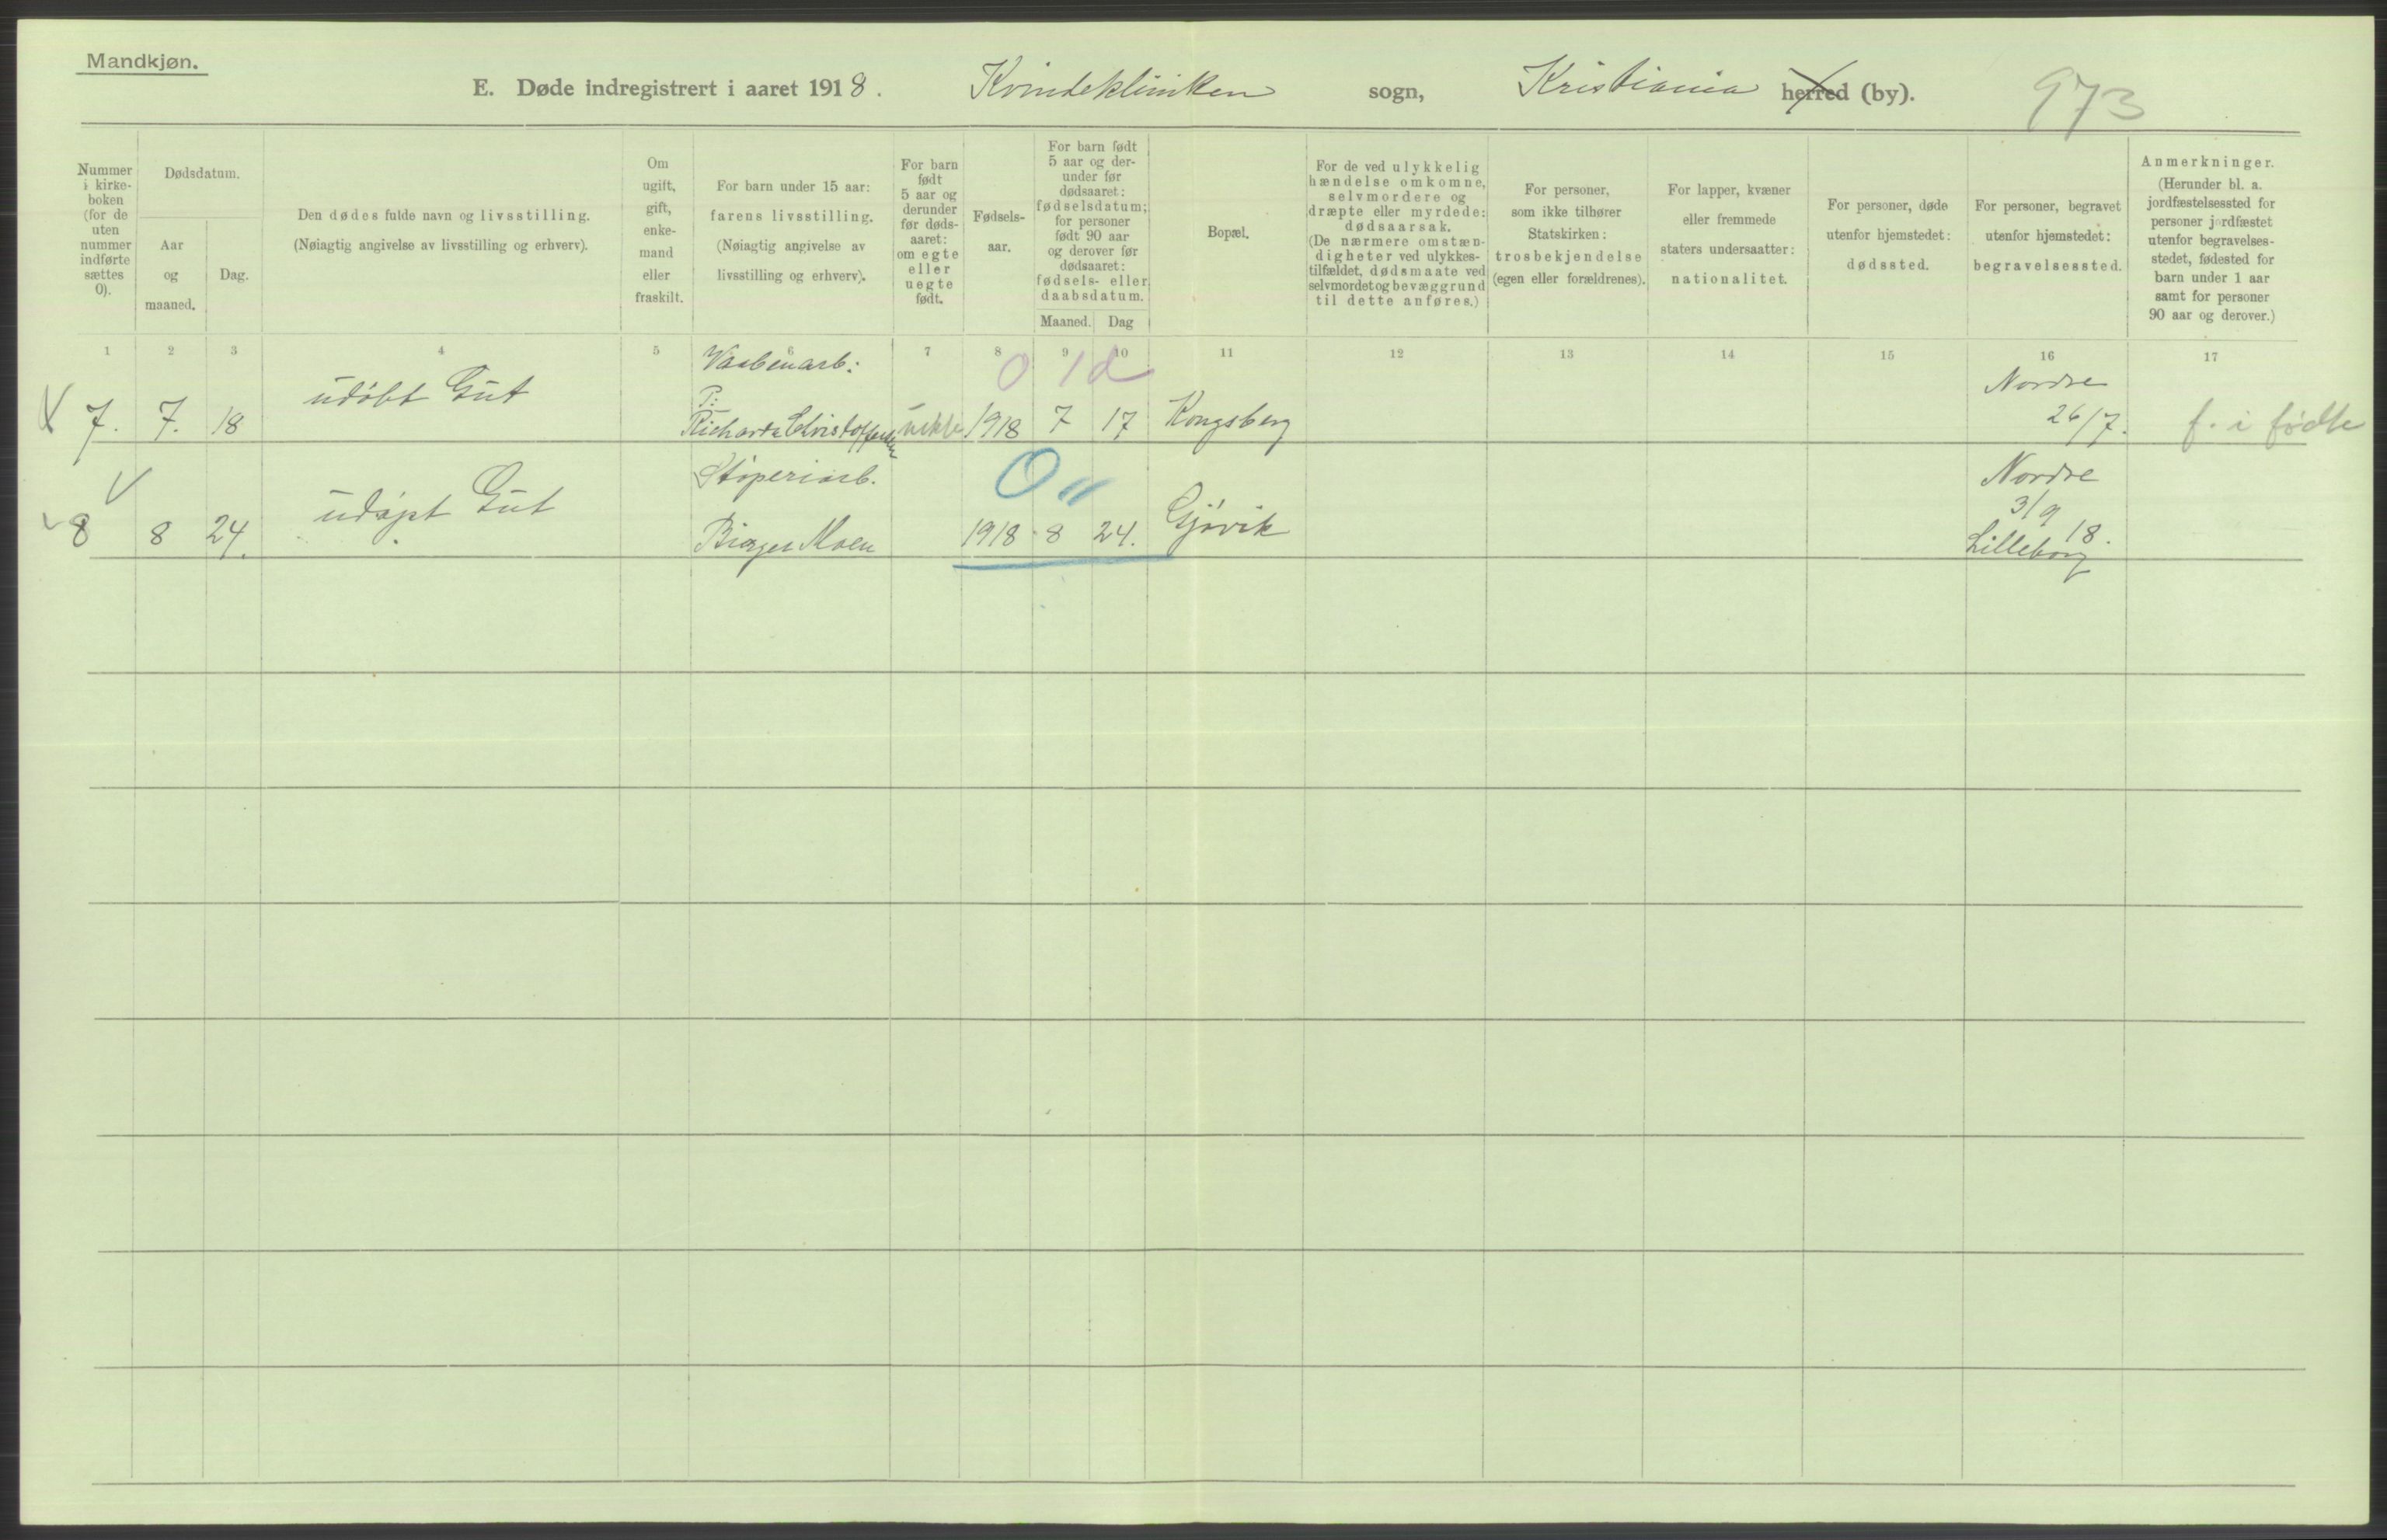 Mandkjøn.
E. Døde indregistrert i aaret 1918. Kvindekliniken sogn, Kristiania herred (by). 973
Nummer
i kirke-
boken
(for de
uten
nummer
indførte
sættes
0).
Dødsdatum.
Aar
og
maaned.
Dag.
Den dødes fulde navn og livsstilling.
(Nøiagtig angivelse av livsstilling og erhverv).
Om
ugift,
gift,
enke-
mand
eller
fraskilt.
For barn under 15 aar:
farens livsstilling.
(Nøiagtig angivelse av
livsstilling og erhverv).
For barn
født
5 aar og
derunder
før døds-
aaret:
om egte
eller
uegte
født.
Fødsels-
aar.
For barn født
5 aar og der-
under før
dødsaaret:
fødselsdatum;
for personer
født 90 aar
og derover før
dødsaaret:
fødsels- eller
daabsdatum.
Maaned. Dag
Bopæl.
For de ved ulykkelig
hændelse omkomne,
selvmordere og
dræpte eller myrdede:
dødsaarsak.
(De nærmere omstæn-
digheter ved ulykkes-
tilfældet, dødsmaate ved
selvmordet og bevæggrund
til dette anføres.)
For personer,
som ikke tilhører
Statskirken:
trosbekjendelse
(egen eller forældrenes).
For lapper, kvæner
eller fremmede
staters undersaatter:
nationalitet.
For personer, døde
utenfor hjemstedet:
dødssted.
For personer, begravet
utenfor hjemstedet:
begravelsessted.
Anmerkninger.
(Herunder bl. a.
jordfæstelsessted for
personer jordfæstet
utenfor begravelses-
stedet, fødested for
barn under 1 aar
samt for personer
90 aar og derover.)
1 2 3 4 5 6 7 8 9 10 11 12 13 14 15 16 17
Vaabenarb: 0 1d Nordre
udøbt Gut P:
7. 7. 18 Richard Christoffersen 1918 7 17 Kongsberg 26/7. f. i fødte
Støperiarb. 0 Nordre
udøpt Gut 3/9
8 8 24. Birger Moen 1918 8 24. Gjøvik 18.
Lilleborg